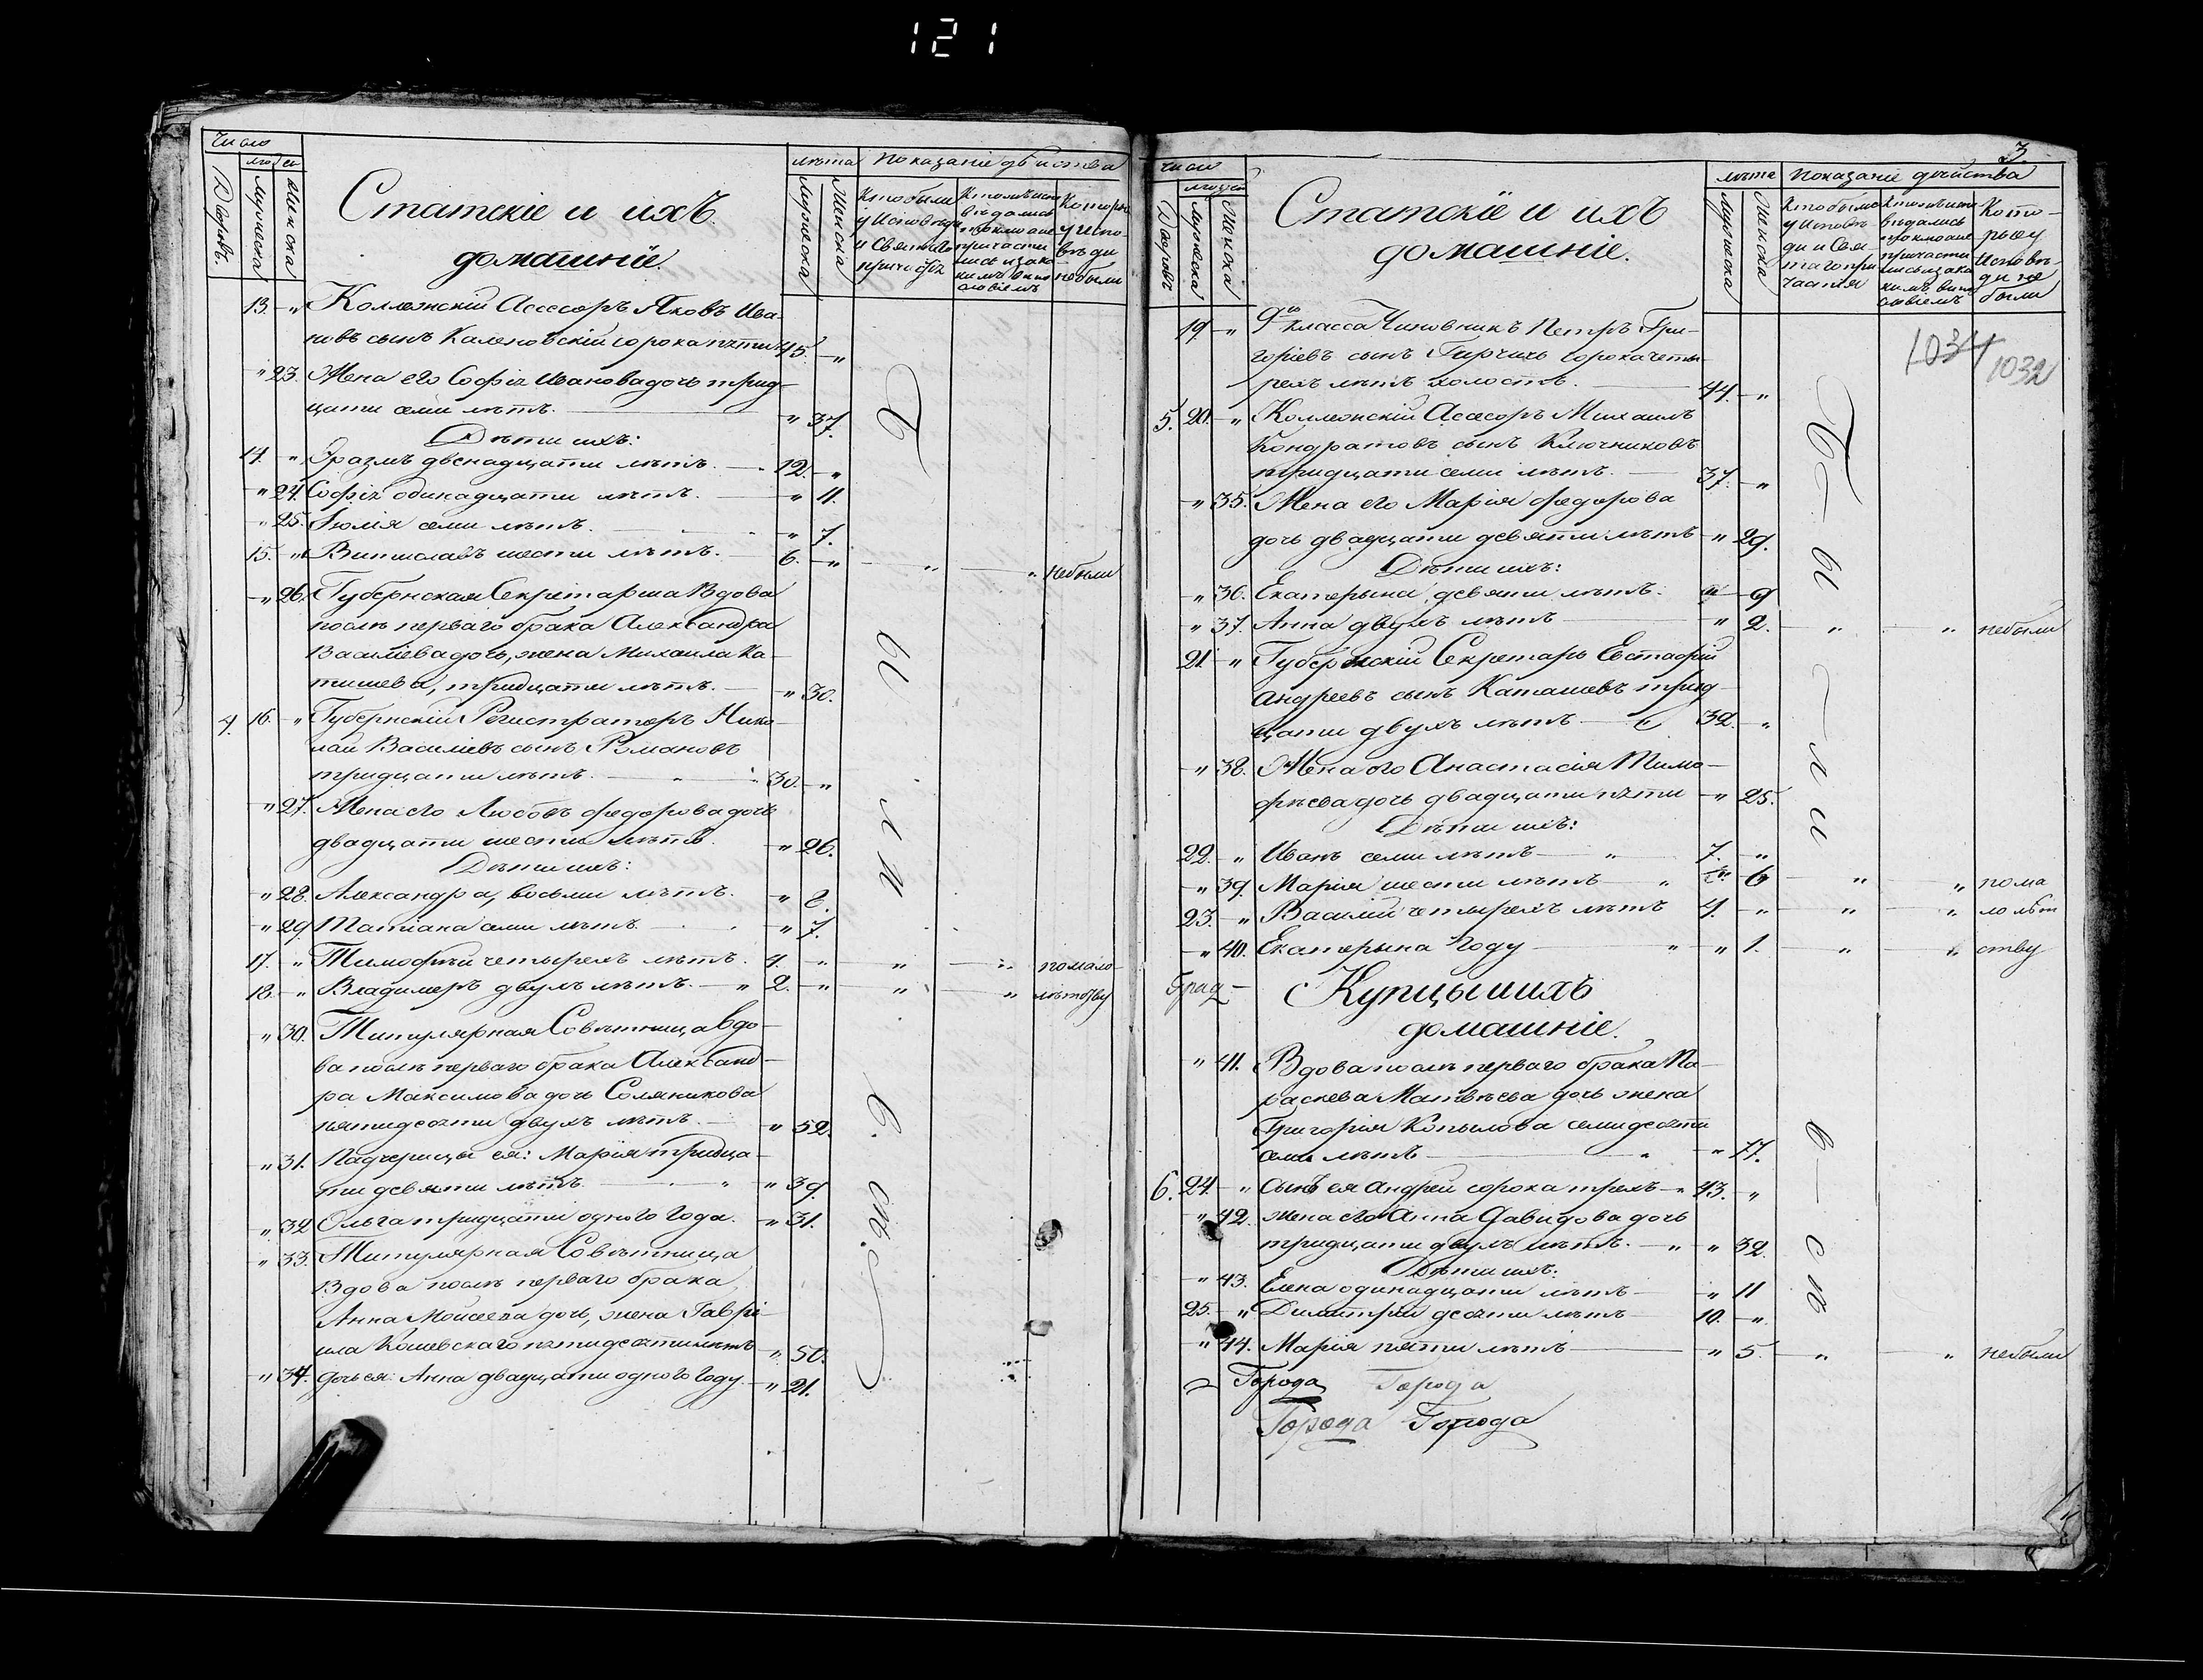 121
Число
людей
Дворовъ.
Мужеска
Женска
Статскіе и ихъ
домашніе.
лѣта
Мужеска
Женска
Показаніе дѣйства
Кто были
у Исповѣди
и Святаго
причастія
Кто исповѣ
дались
токмо а не
причасти
лись и зака
кимъ вино
словіемъ
Которые
у Испо-
вѣди
небыли
13. " Коллежскій Асессоръ Яковъ Ива-
новъ сынъ Каленовскій сорока пяти 45. "
" 23. Жена его Софія Иванова дочь трид-
цати семи лѣтъ. " 37.
Дѣти ихъ:
14. " Эразмъ двенадцати лѣтъ. 12. "
" 24. Софія одинадцати лѣтъ. " 11.
" 25. Іюлія семи лѣтъ. " 7.
15. " Витиславъ шести лѣтъ. 6. " " " небыли
" 26. Губернская Секретарша Вдова
послѣ перваго брака Александра
Васильева дочь, жена Михаила Ка-
тишева, тридцати лѣтъ. " 30.
4. 16. " Губернскій Регистраторъ Нико-
лай Василіевъ сынъ Романовъ
тридцати лѣтъ. 30. "
" 27. Жена его Любовь Федорова дочь
двадцати шести лѣтъ " 26.
Дѣти ихъ:
" 28. Александра, восьми лѣтъ. " 8.
" 29. Татіана семи лѣтъ. " 7.
17. " Тимофей четырехъ лѣтъ. 4. " " " помало-
18. " Владимеръ двухъ лѣтъ. " 2. " " " лѣтству
" 30. Титулярная Совѣтница вдо-
ва послѣ перваго брака Александ-
ра Максимова дочь Соляникова
пятидесяти двухъ лѣтъ. " 52.
" 31. Падчерицы ея: Марія тридца-
ти девяти лѣтъ. " " 39.
" 32. Ольга тридцати одного года. " 31.
" 33. Титулярная Совѣтница
Вдова послѣ перваго брака
Анна Моисеева дочь, жена Гаврі-
ила Кошевскаго пятидесяти лѣтъ " 50.
" 34. Дочь ея: Анна двадцати одного году. " 21.
Б
ы
л
и
в.
сѣ
3
Число
людей
Дворовъ
Мужеска
Женска
Статскіе и ихъ
домашніе.
лѣта
Мужеска
Женска
Показаніе дѣйства
Кто были
у Исповѣ
ди и Свя-
таго при
частія
Кто исповѣ
дались
токмо а не
причасти
лись и зака
кимъ вино
словіемъ
Кото-
рые у
Исповѣ-
ди не
были
1034 1032
19. " 9го класса Чиновникъ Петръ Гри-
горіевъ сынъ сорока четы-
рехъ лѣтъ холостъ. 44. "
5. 20. " Коллежскій Асессоръ Михаилъ
Кондратовъ сынъ Ключниковъ
тридцати семи лѣтъ. 37. "
" 35. Жена его Марія Федорова
дочь двадцати девяти лѣтъ " 29.
Дѣти ихъ:
" 36. Екатерина девяти лѣтъ. " 9
" 37. Анна двухъ лѣтъ " 2. " " небыли
21. " Губернскій Секретарь Евстафій
Андреевъ сынъ Каташевъ трид-
цати двухъ лѣтъ 32. "
" 38. Жена его Анастасія Тимо-
фѣева дочь двадцати пяти " 25.
Дѣти ихъ:
22. " Иванъ семи лѣтъ " 7. "
" 39. Марія шести лѣтъ " " 6 " " пома
23. " Василій четырехъ лѣтъ 4. " " " лолѣт
" 40. Екатерына году " " 1. " " ству
Град-
Купцы и ихъ
домашніе.
" 41. Вдова послѣ перваго брака Па-
раскева Матвѣева дочь жена
Григорія Копылова семидесяти
семи лѣтъ " " 77.
6. 24. " Сынъ ея Андрей сорока трехъ " 43. "
" 42. жена его Анна Давидова дочь
тридцати двухъ лѣтъ. " " 32.
Дѣти ихъ:
" 43. Елена одинадцати лѣтъ " 11
25. " Димитрій десяти лѣтъ 10. "
" 44. Марія пяти лѣтъ " 5. " " небыли
Города Города
Города Города
Б
ы
л
и
в
с
ѣ